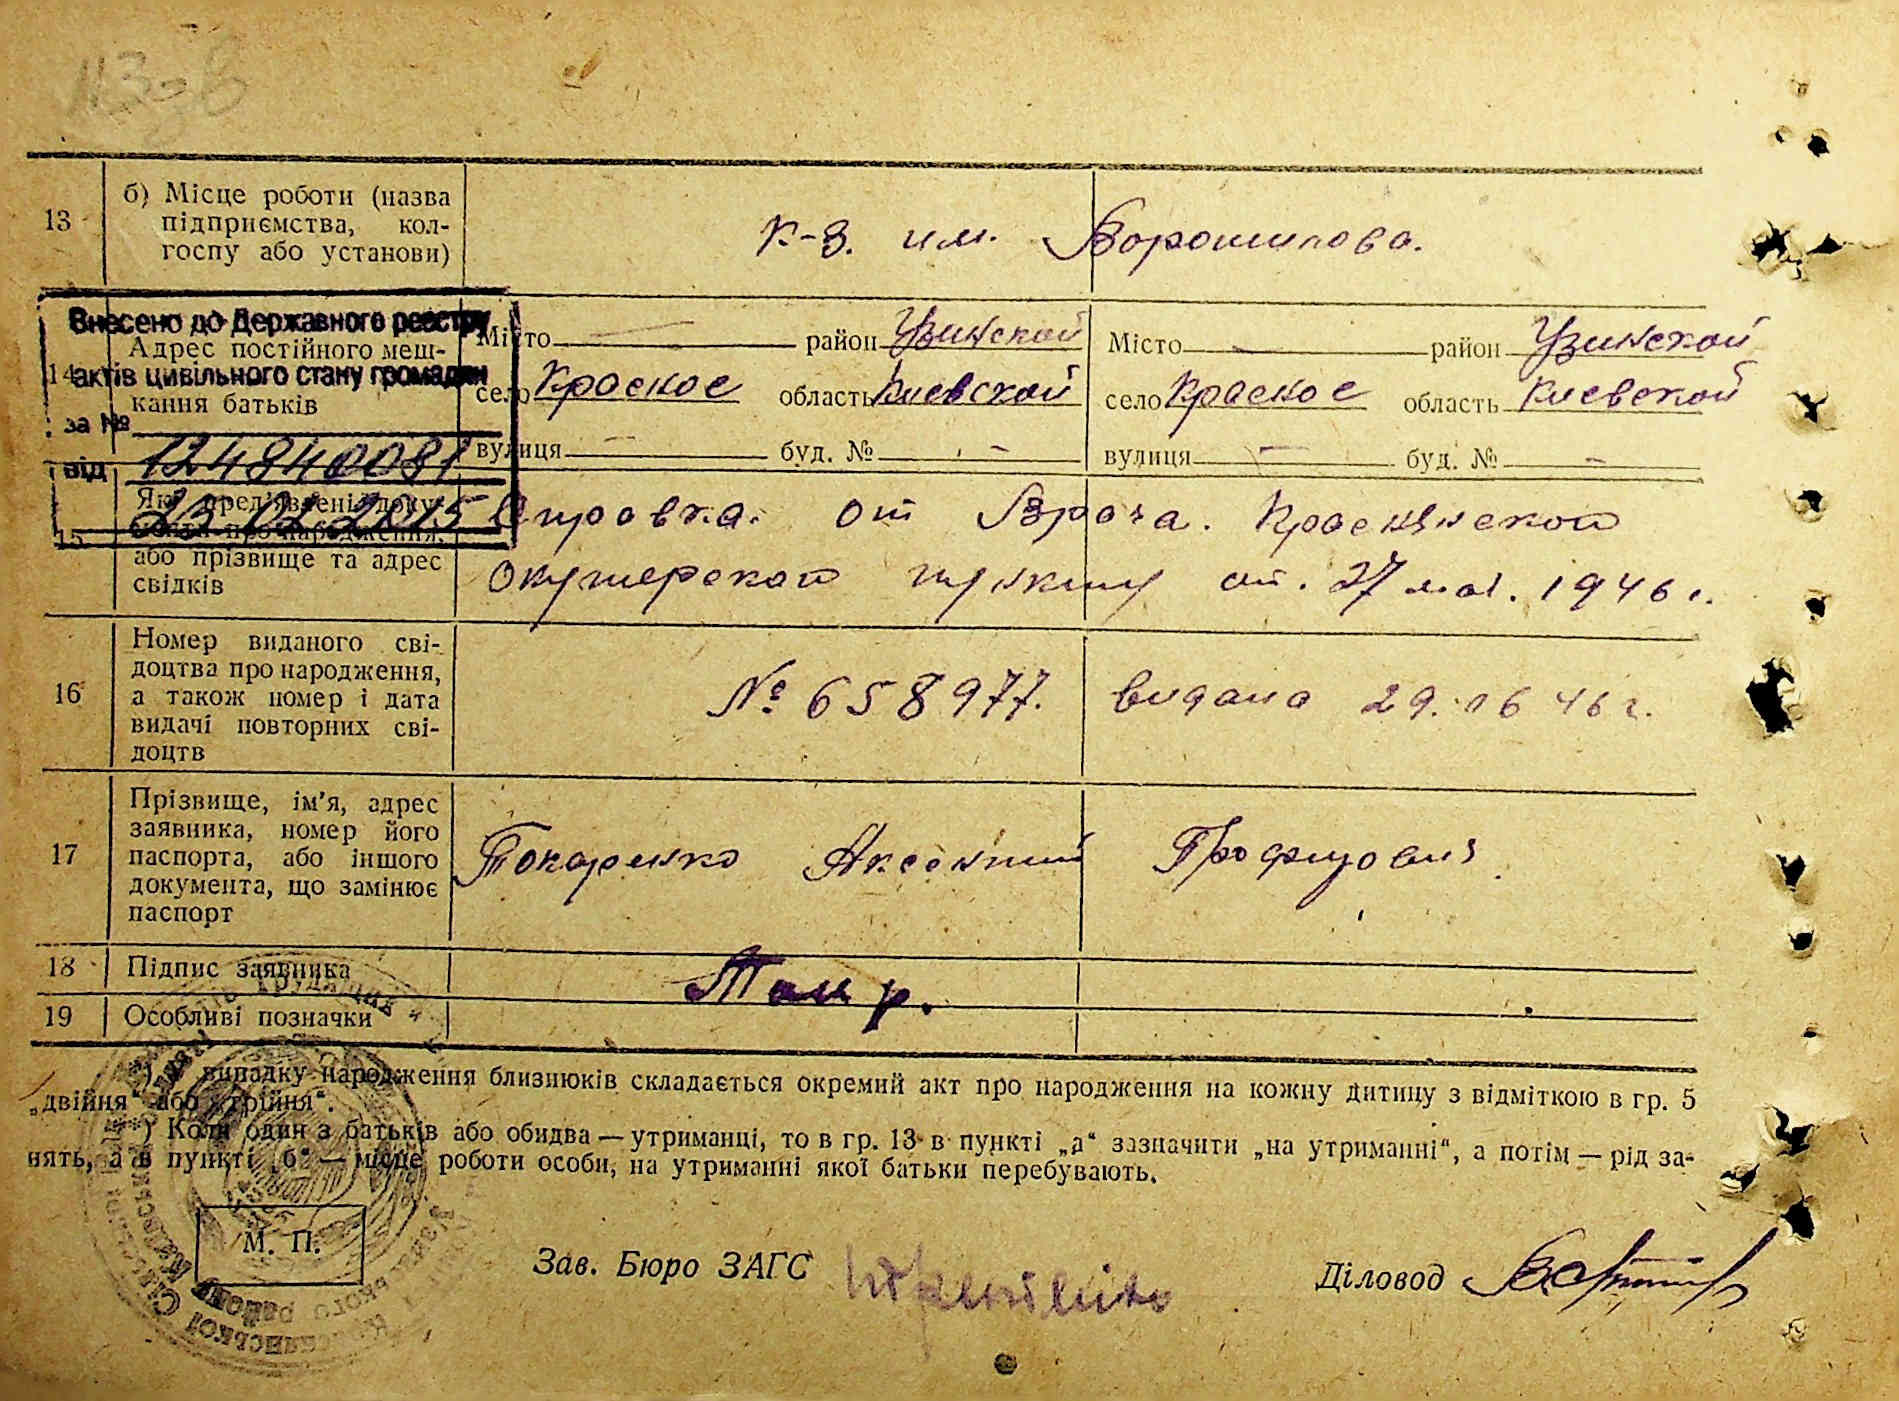 13
б) Місце роботи (назва
підприємства, кол-
госпу або установи)
К-з. им. Ворошилова.
Внесено до Державного реєстру
актів цивільного стану громадян
за №
124840081
від
23 02 2015
14
Адрес постійного меш-
кання батьків
Місто — район Узинской
село Красное область Киевской
вулиця — буд. № -
Місто — район Узинской
село Красное область Киевской
вулиця — буд. № -
15
Які пред'явлені доку-
менти про народження,
або прізвище та адрес
свідків
Справка. от Врача.
Окушерской пункту от. 27 мая. 1946 г.
16
Номер виданого сві-
доцтва про народження,
а також номер і дата
видачі повторних сві-
доцтв
№ 658977. видана 29. 46 г.
17
Прізвище, ім'я, адрес
заявника, номер його
паспорта, або іншого
документа, що замінює
паспорт
Токаренко Аксентий
18
Підпис заявника
19
Особливі позначки
*) У випадку народження близнюків складається окремий акт про народження на кожну дитину з відміткою в гр. 5
„двійня“ або „трійня“.
*) Коли один з батьків або обидва — утриманці, то в гр. 13 в пункті „а“ зазначити „на утриманні“, а потім — рід за-
нять, а в пункті „б“ — місце роботи особи, на утриманні якої батьки перебувають.
М. П.
Зав. Бюро ЗАГС
Діловод